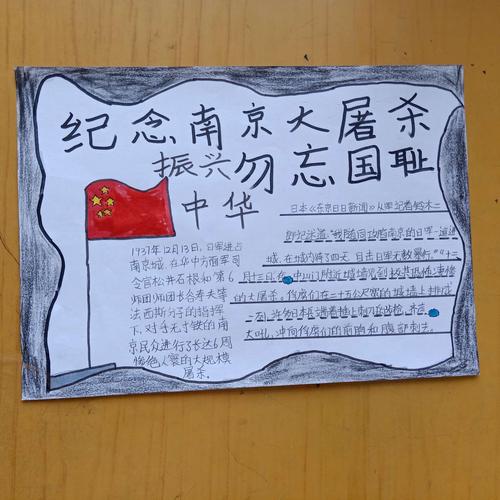 纪念南京大屠杀
振兴
勿忘国耻
中华
日本《东京日日新闻》从军记者铃木二
郎记述道:"我随同攻陷南京的日军一道进
城,在城内待了四天,目击日军无数暴行。""十二
月十三日,在中山门附近城墙见到极其恐怖凄惨
的大屠杀。俘虏们在二十五公尺宽的城墙上排成
一列,许多日本兵端着插上刺刀的枪,齐声
大吼,冲向俘虏们的前胸和腹部刺去。
1937年12月13日,日军进占
南京城,在华中方面军司
令官松井石根和第6
师团师团长谷寿夫等
法西斯分子的指挥
下,对手无寸铁的南
京民众进行了长达6周
惨绝人寰的大规模
屠杀.